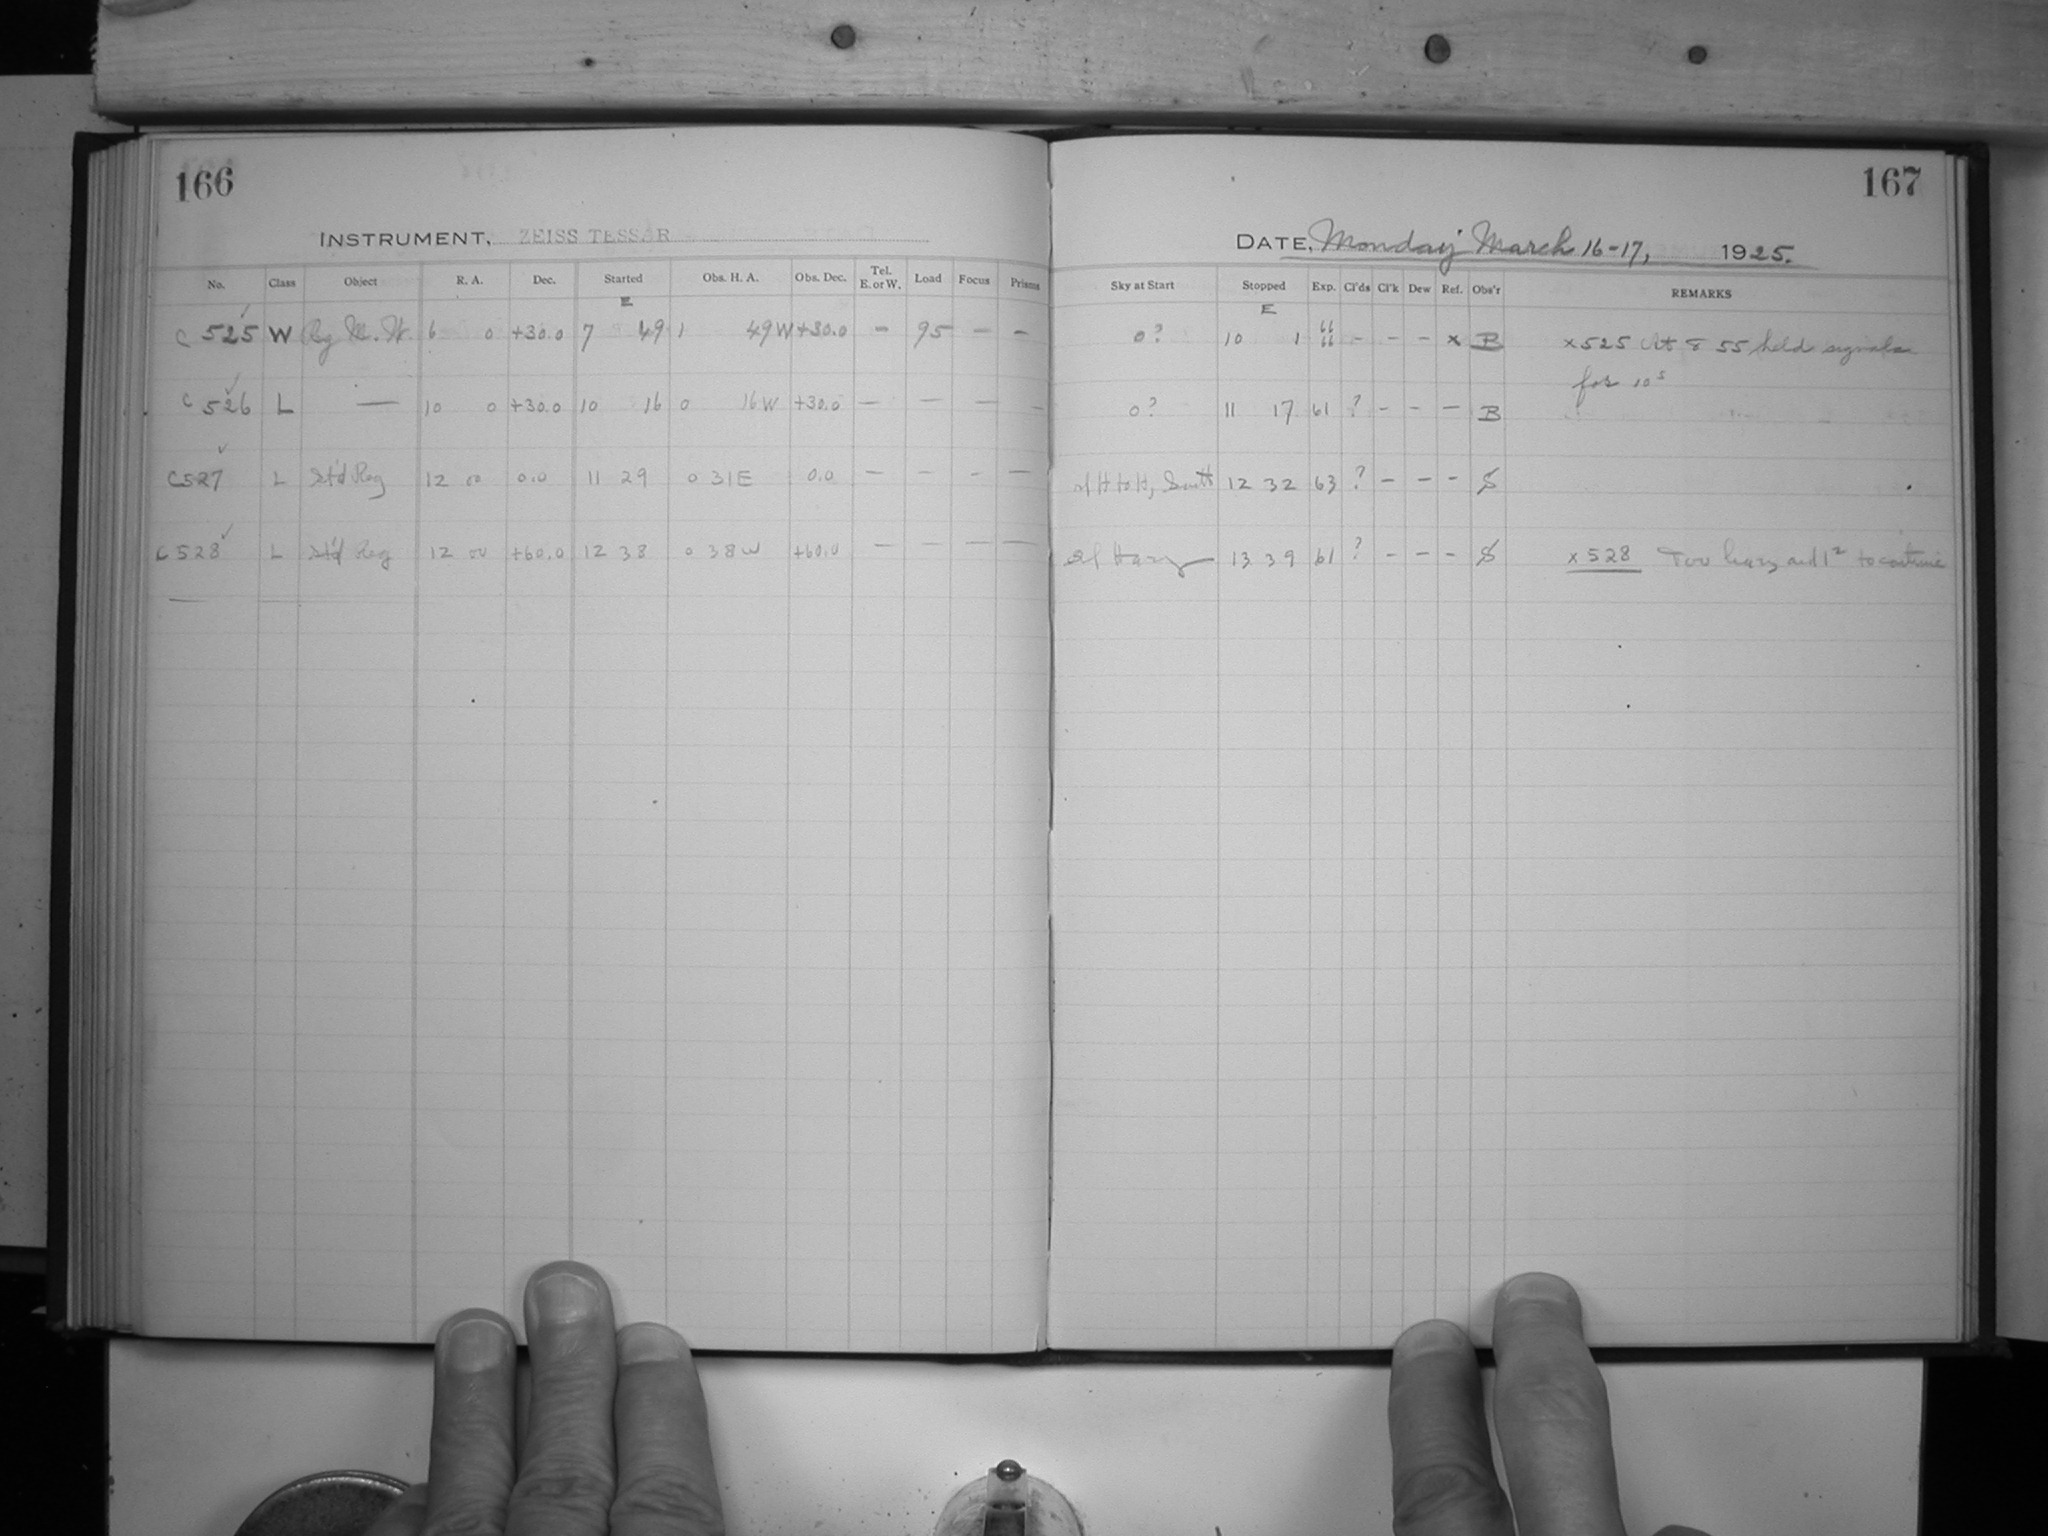 166
INSTRUMENT, ZEISS TESSAR
No. Class Object R. A. Dec. Started Obs. H. A. Obs. Dec. Tel. E. or W. Load Focus Prisms
E
C 525 W Rg M. H. 6 0 +30.0 7 49 1 49W +30.0 - 95 - -
C 526 L — 10 0 +30.0 10 16 0 16W +30.0 - - - -
C527 L Std Reg 12 00 0.0 11 29 0 31E 0.0 - - - -
C528 L Std Reg 12 00 +60.0 12 38 0 38W +60.0 - - - -
167
DATE, Monday March 16-17, 1925.
Sky at Start Stopped Exp. Cl'ds Cl'k Dew Ref. Obs'r REMARKS
E
0? 10 1 66 66 - - - x B x525 At 8 55 held signals
for 10s
0? 11 17 61 ? - - - B
12 32 63 ? - - - S
Hazy 13 39 61 ? - - - S x528 Too hazy and to continue